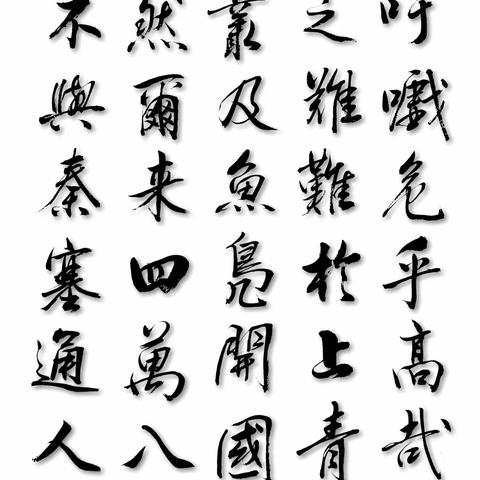 吁嚱危乎高哉
之難難於上青
叢及魚鳧開國
然爾来四萬八
不與秦塞通人